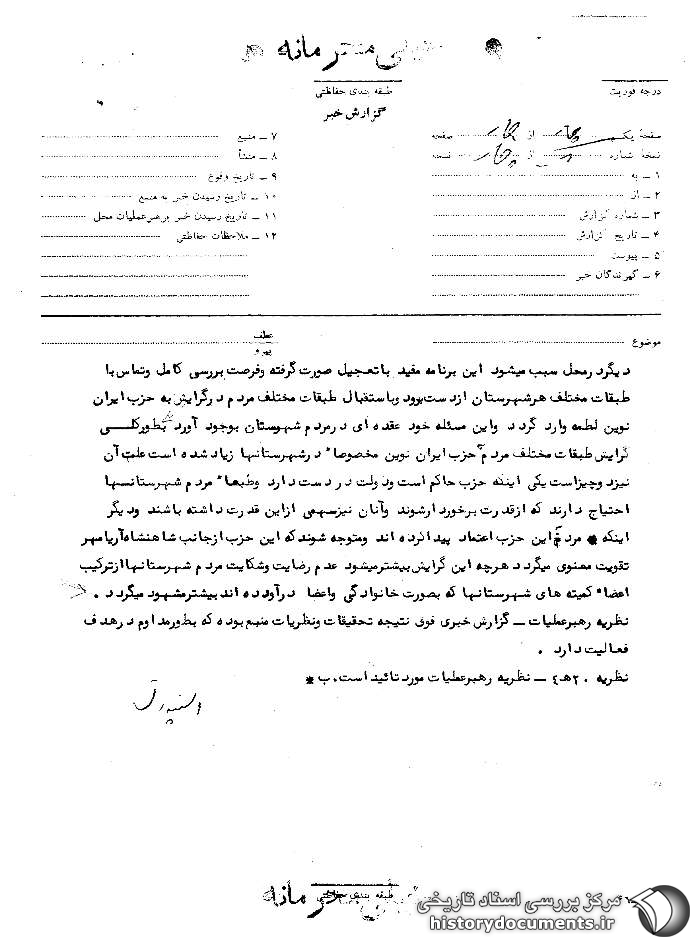 خیلی محرمانه
درجه فوریت
طبقه بندی حفاظتی
گزارش خبر
صفحه یکم از صفحه
نسخه شماره از نسخه
۱ ــ به
۲ ــ از
۳ ــ شماره گزارش
۴ ــ تاریخ گزارش
۵ ــ پیوست
۶ ــ گیرندگان خبر
۷ ــ منبع
۸ ــ منشأ
۹ ــ تاریخ وقوع
۱۰ ــ تاریخ رسیدن خبر به منبع
۱۱ ــ تاریخ رسیدن خبر برهبرعملیات محل
۱۲ ــ ملاحظات حفاظتی
موضوع
عطف
پیرو
دیگرد رمحل سبب میشود این برنامه مفید باتعجیل صورت گرفته وفرصت بررسی کامل وتماس با
طبقات مختلف هرشهرستان ازدست برود وبااستقبال طبقات مختلف مردم درگرایش به حزب ایران
نوین لطمه وارد گردد واین مسئله خود عقده ای درمردم شهرستان بوجود آورد بطورکلـــی
گرایش طبقات مختلف مردم حزب ایران نوین مخصوصاً درشهرستانها زیاد شده است علت آن
نیزدوچیزاست یکی اینکه حزب حاکم است ودولت دردست دارد وطبعاً مردم شهرستانـــها
احتیاج دارند که ازقدرت برخوردارشوند وآنان نیزسهمی ازاین قدرت داشته باشند ودیگر
اینکه مردم این حزب اعتماد پیداکرده اند ومتوجه شوندکه این حزب ازجانب شاهنشاه آریامهر
تقویت معنوی میگردد هرچه این گرایش بیشترمیشود عدم رضایت وشکایت مردم شهرستانها ازترکیب
اعضاء کمیته های شهرستانها که بصورت خانوادگی واعضا درآورده اند بیشترمشهود میگردد .
نظریه رهبرعملیات ــ گزارش خبری فوق نتیجه تحقیقات ونظریات منبع بوده که بطورمداوم درهدف
فعالیت دارد .
نظریه ۲۰هـ۴ ــ نظریه رهبرعملیات مورد تائید است.ب*
طبقه بندی حفاظتی
خیلی محرمانه
مرکز بررسی اسناد تاریخی
historydocuments.ir